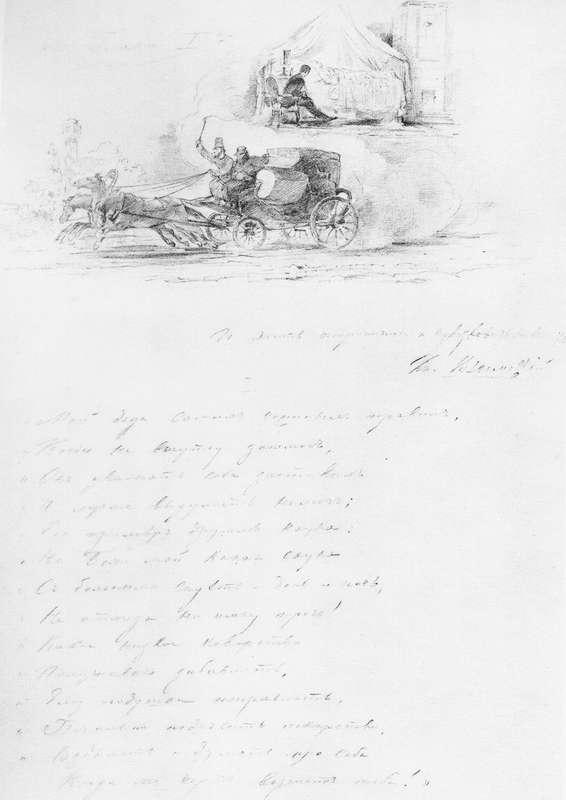 И жить торопится и чувствовать
Кн. Вяземскій
I
«Мой дядя самыхъ честныхъ правилъ,
Когда не въ шутку занемогъ,
Онъ уважать себя заставилъ
И лучше выдумать не могъ;
Его примѣръ другимъ наука:
Но Боже мой какая скука
Съ больнымъ сидѣть и день и ночь,
Не отходя ни шагу прочь!
Какое низкое коварство
Полуживаго забавлять,
Ему подушки поправлять,
Печально подносить лекарство,
Вздыхать и думать про себя
Когда же чортъ возметъ тебя!»